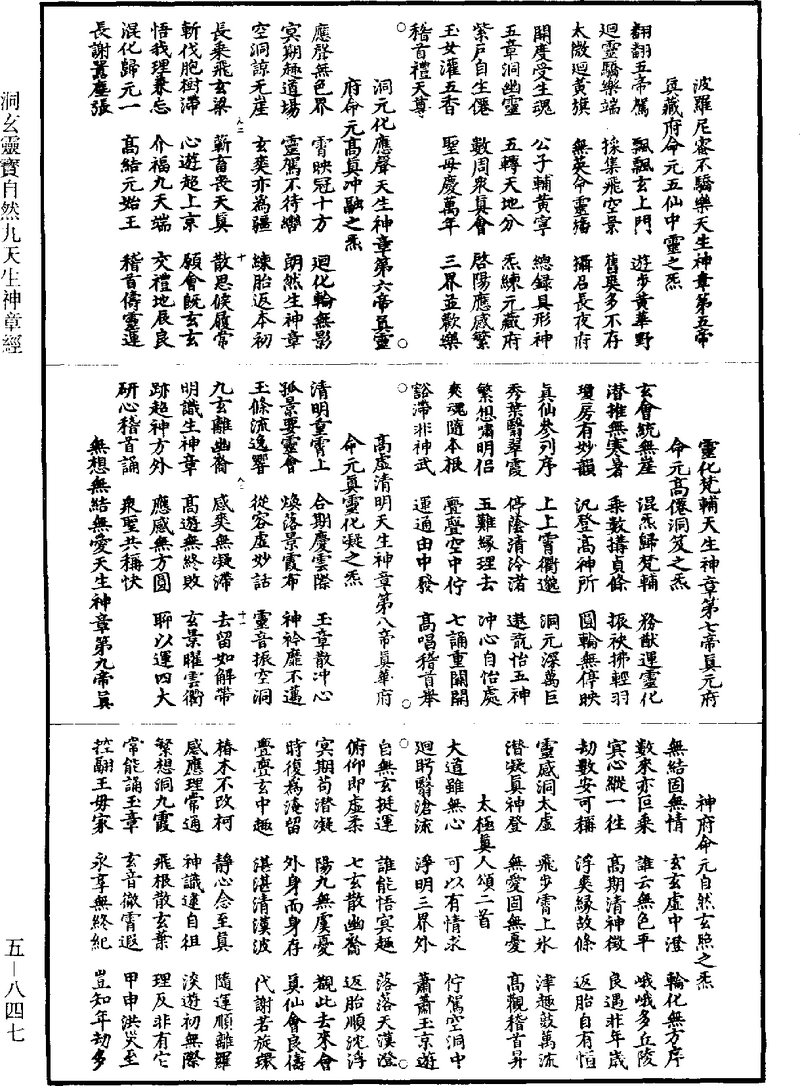 波羅尼密不驕樂天生神章第五帝
真藏府命元五仙中靈之炁
翻翻五帝駕 飄飄玄上門 遊步黃華野
迴靈驕樂端 採集飛空景 舊奧多不存
太微迴黃旗 無英命靈旛 攝召長夜府
開度受生魂 公子輔黃寧 總錄具形神
五章洞幽靈 五轉天地分 炁練元藏府
紫戶自生僊 數周衆真會 啓陽應感繁
玉女灌五香 聖母慶萬年 三界並歡樂
稽首禮天尊
洞元化應聲天生神章第六帝真靈
府命元高真沖融之炁
應聲無色界 霄映冠十方 迴化輪無影
冥期趣道場 靈駕不待轡 朗然生神章
空洞諒無崖 玄爽亦為疆 練胎返本初
長乘飛玄梁 蘄畜喪天真 散思候履常
斬伐胞樹滯 心遊超上京 願會既玄玄
悟我理兼忘 介福九天端 交禮地辰良
混化歸元一 高結元始王 稽首儔靈運
長謝囂塵張
靈化梵輔天生神章第七帝真元府
命元高僊洞笈之炁
玄會統無崖 混炁歸梵輔 務猷運靈化
潛推無寒暑 乘數構貞條 振袂拂輕羽
瓊房有妙韻 汎登高神所 圓輪無停映
真仙參列序 上上霄衢邈 洞元深萬巨
秀葉翳翠霞 停蔭清泠渚 遨翫怡五神
繁想嘯明侶 五難緣理去 冲心自怡處
爽魂隨本根 亹亹空中佇 七誦重關開
豁滯非神武 運通由中發 高唱稽首舉
高虛清明天生神章第八帝真華府
命元真靈化凝之炁
清明重霄上 合期慶雲際 玉章散冲心
孤景要靈會 煥落景霞布 神衿靡不邁
玉條流逸響 從容虛妙話 靈音振空洞
九玄離幽裔 感爽無凝滯 去留如解帶
明識生神章 高遊無終敗 玄景曜雲衢
跡超神方外 應感無方圓 聊以運四大
研心稽首誦 衆聖共稱快
無想無結無愛天生神章第九帝真
神府命元自然玄照之炁
無結固無情 玄玄虛中澄 輪化無方序
數來亦叵乘 誰云無色平 峨峨多丘陵
冥心縱一往 高期清神徵 良遇非年歲
劫數安可稱 浮爽緣故條 返胎自有恒
靈感洞太虛 飛步霄上冰 津趣鼓萬流
潛凝真神登 無愛固無憂 高觀稽首昇
太極真人頌二首
大道雖無心 可以有情求 佇駕空洞中
迴眄翳滄流 淨明三界外 蕭蕭玉京遊
自無玄挺運 誰能悟冥趣 落落天漢澄
俯仰即虛柔 七玄散幽裔 返胎順沈浮
冥期苟潛凝 陽九無虞憂 觀此去來會
時復為淹留 外身而身存 真仙會良儔
亹亹玄中趣 湛湛清漢波 代謝若旋環
椿木不改柯 靜心念至真 隨運順離羅
感應理常通 神識逮自祖 淡遊初無際
繁想洞九霞 飛根散玄葉 理反非有它
常能誦玉章 玄音徹霄遐 甲申洪災至
控翮王母家 永享無終紀 豈知年劫多
洞玄靈寶自然九天生神章經
五—八四七